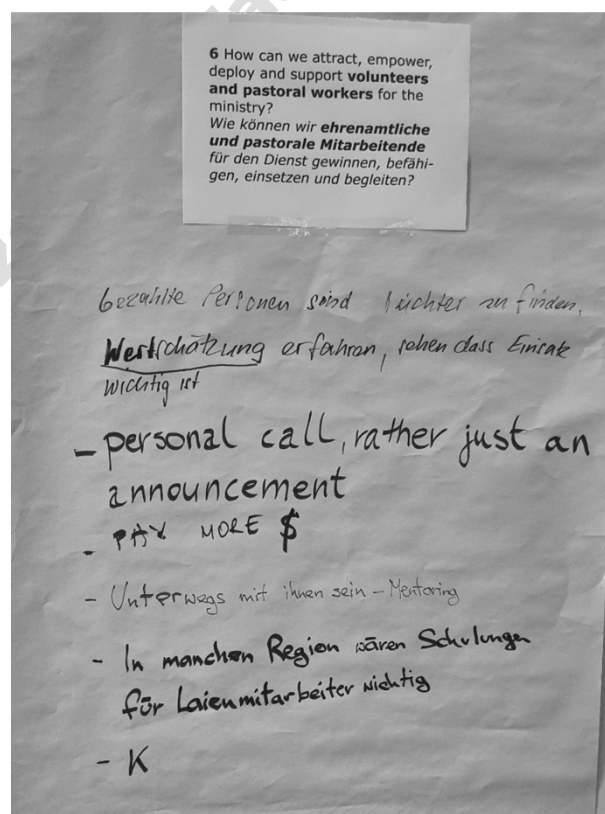 6 How can we attract, empower,
deploy and support volunteers
and pastoral workers for the
ministry?
Wie können wir ehrenamtliche
und pastorale Mitarbeitende
für den Dienst gewinnen, befähi-
gen, einsetzen und begleiten?
bezahlte Personen sind leichter zu finden,
Wertschätzung erfahren, sehen dass Einsatz
wichtig ist
- personal call, rather just an
announcement
- PAY MORE $
- Unterwegs mit ihnen sein - Mentoring
- In manchen Region wären Schulungen
für Laienmitarbeiter wichtig
- K